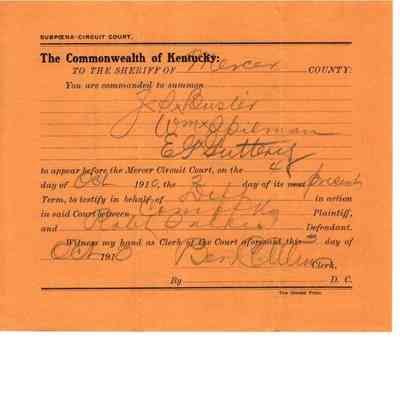 SUBPŒNA-CIRCUIT COURT.
The Commonwealth of Kentucky:
TO THE SHERIFF OF Mercer COUNTY:
You are commanded to summon
Wm Spilman
to appear before the Mercer Circuit Court, on the 4
day of Oct 1910, the 3 day of its next present
Term, to testify in behalf of Deft in action
in said Court between Com of Ky Plaintiff,
and Defendant.
Witness my hand as Clerk of the Court aforesaid this 3 day of
Oct 191 Ben Allen Clerk.
By D. C.